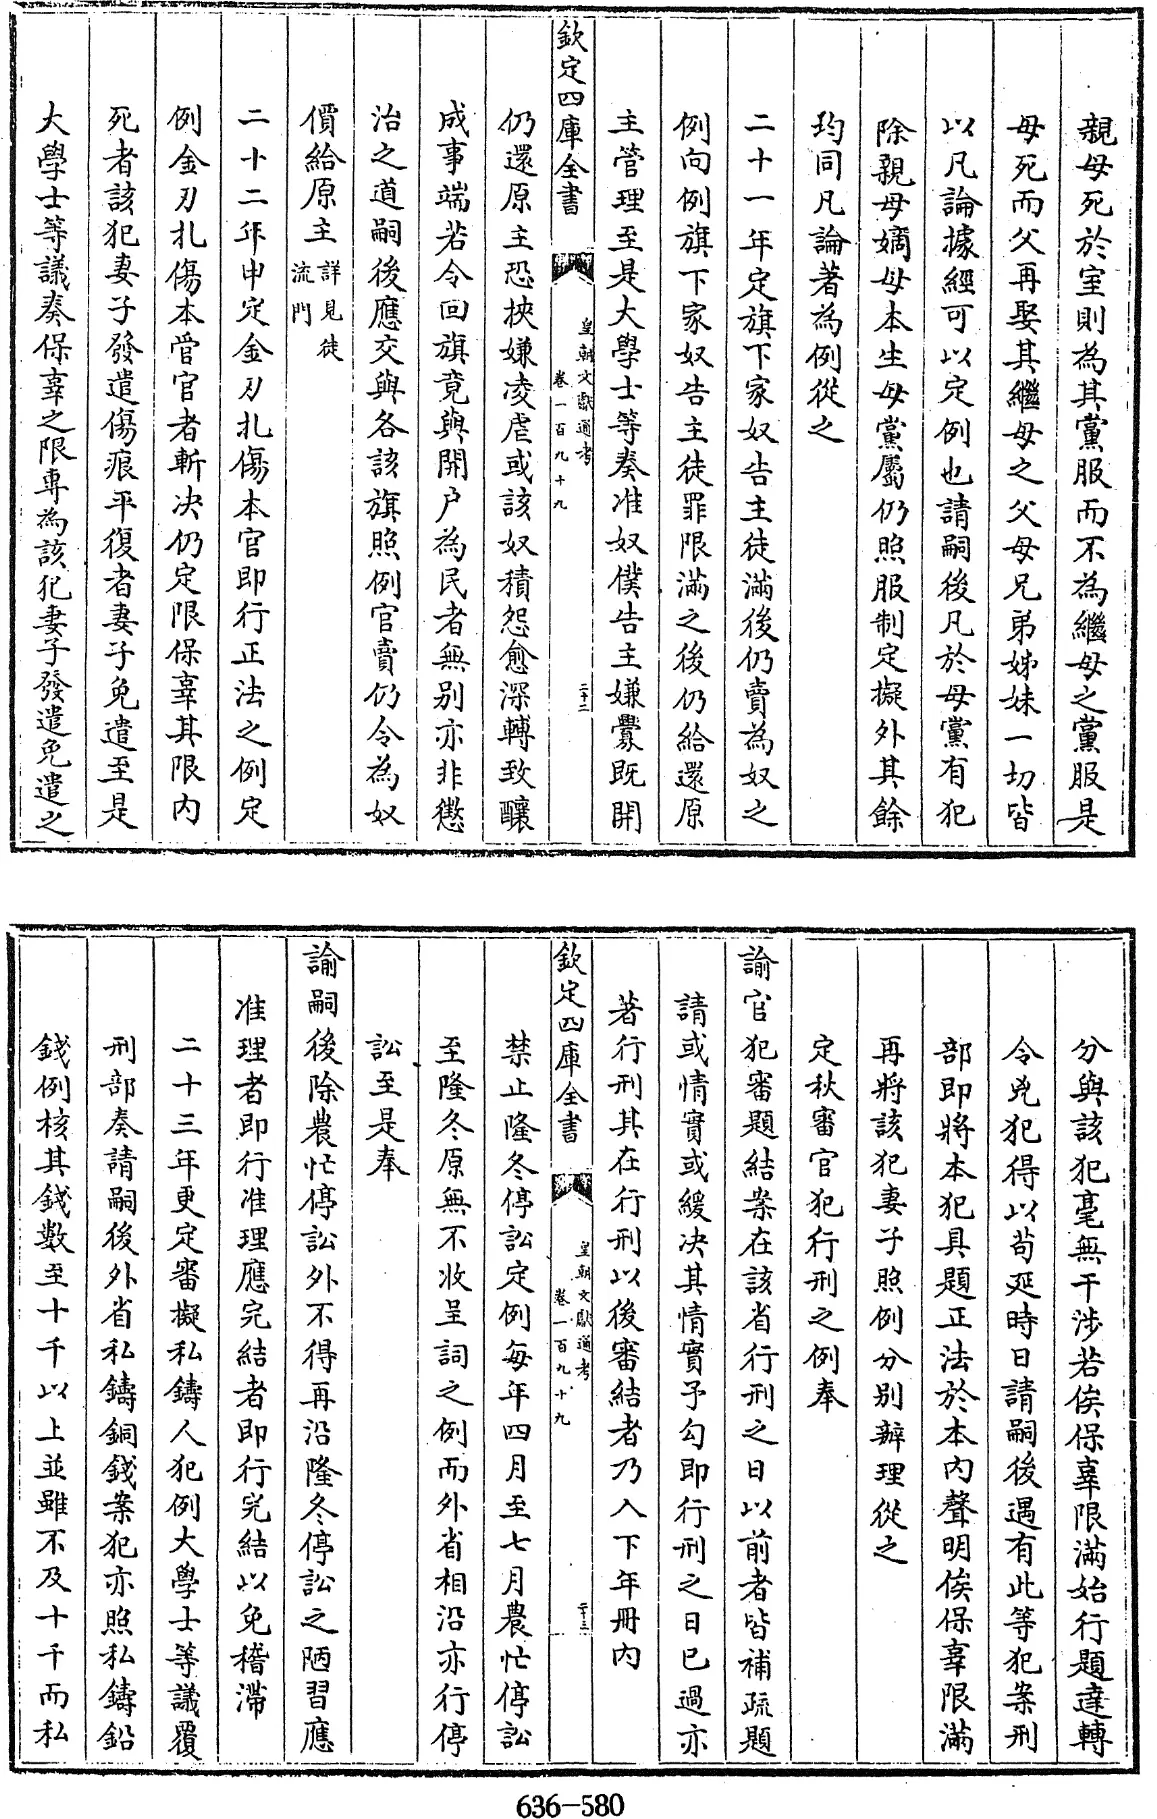 親母死於室則為其黨服而不為繼母之黨服是
母死而父再娶其繼母之父母兄弟姊妹一切皆
以凡論據經可以定例也請嗣後凡於母黨有犯
除親母嫡母本生母黨屬仍照服制定擬外其餘
均同凡論著為例從之
二十一年定旗下家奴告主徒滿後仍賣為奴之
例向例旗下家奴告主徒罪限滿之後仍給還原
主管理至是大學士等奏准奴僕告主嫌釁既開
欽定四庫全書
皇朝文獻通考
卷一百九十九
二十二
仍還原主恐挾嫌凌虐或該奴積怨愈深轉致釀
成事端若令回旗竟與開户為民者無别亦非懲
治之道嗣後應交與各該旗照例官賣仍令為奴
價給原主詳見徒
流門
二十二年申定金刃扎傷本官即行正法之例定
例金刃扎傷本管官者斬决仍定限保辜其限内
死者該犯妻子發遣傷痕平復者妻子免遣至是
大學士等議奏保辜之限專為該犯妻子發遣免遣之
分與該犯毫無干涉若俟保辜限滿始行題達轉
令兇犯得以苟延時日請嗣後遇有此等犯案刑
部即將本犯具題正法於本内聲明俟保辜限滿
再將該犯妻子照例分别辦理從之
定秋審官犯行刑之例奉
諭官犯審題結案在該省行刑之日以前者皆補疏題
請或情實或緩决其情實予勾即行刑之日已過亦
著行刑其在行刑以後審結者乃入下年冊内
欽定四庫全書
皇朝文獻通考
卷一百九十九
二十三
禁止隆冬停訟定例每年四月至七月農忙停訟
至隆冬原無不收呈詞之例而外省相沿亦行停
訟至是奉
諭嗣後除農忙停訟外不得再沿隆冬停訟之陋習應
准理者即行准理應完結者即行完結以免稽滯
二十三年更定審擬私鑄人犯例大學士等議覆
刑部奏請嗣後外省私鑄銅錢案犯亦照私鑄鉛
錢例核其錢數至十千以上並雖不及十千而私
636-580